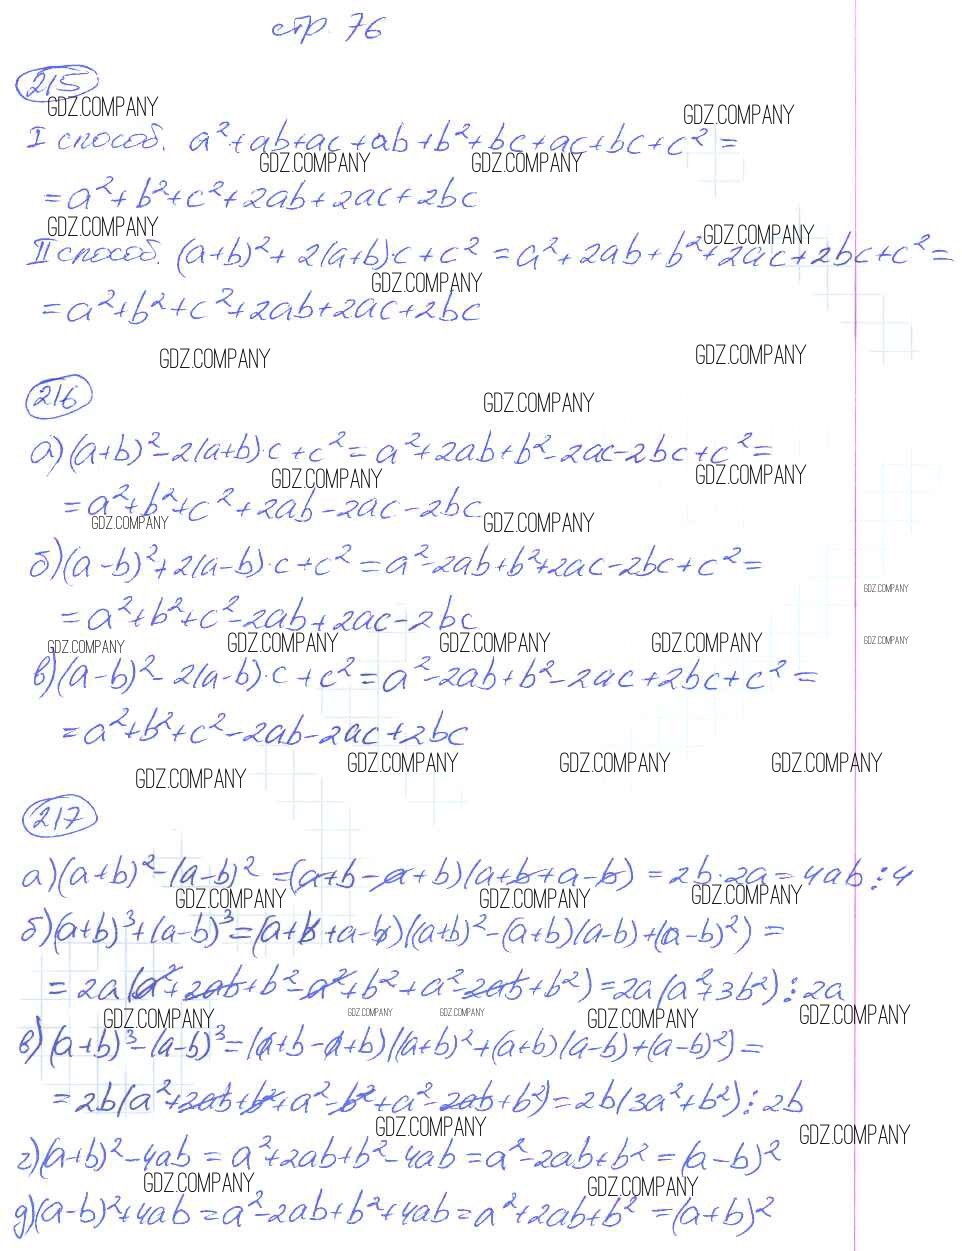 стр. 76
215
GDZ.COMPANY
GDZ.COMPANY
I способ. a²+ab+ac+ab+b²+bc+ac+bc+c² =
GDZ.COMPANY GDZ.COMPANY
= a²+b²+c²+2ab+2ac+2bc
GDZ.COMPANY GDZ.COMPANY
II способ. (a+b)²+2(a+b)c+c² = a²+2ab+b²+2ac+2bc+c² =
GDZ.COMPANY
= a²+b²+c²+2ab+2ac+2bc
GDZ.COMPANY GDZ.COMPANY
216
GDZ.COMPANY
а) (a+b)²-2(a+b)·c+c² = a²+2ab+b²-2ac-2bc+c² =
GDZ.COMPANY GDZ.COMPANY
= a²+b²+c²+2ab-2ac-2bc
GDZ.COMPANY GDZ.COMPANY
б) (a-b)²+2(a-b)·c+c² = a²-2ab+b²+2ac-2bc+c² =
GDZ.COMPANY
= a²+b²+c²-2ab+2ac-2bc
GDZ.COMPANY GDZ.COMPANY GDZ.COMPANY GDZ.COMPANY GDZ.COMPANY
в) (a-b)²-2(a-b)·c+c² = a²-2ab+b²-2ac+2bc+c² =
= a²+b²+c²-2ab-2ac+2bc
GDZ.COMPANY GDZ.COMPANY GDZ.COMPANY GDZ.COMPANY
217
а) (a+b)²-(a-b)² = (a+b-a+b)(a+b+a-b) = 2b·2a = 4ab ⋮ 4
GDZ.COMPANY GDZ.COMPANY GDZ.COMPANY
б) (a+b)³+(a-b)³ = (a+b+a-b)((a+b)²-(a+b)(a-b)+(a-b)²) =
= 2a(a²+2ab+b²-a²+b²+a²-2ab+b²) = 2a(a²+3b²) ⋮ 2a
GDZ.COMPANY GDZ.COMPANY GDZ.COMPANY GDZ.COMPANY GDZ.COMPANY
в) (a+b)³-(a-b)³ = (a+b-a+b)((a+b)²+(a+b)(a-b)+(a-b)²) =
= 2b(a²+2ab+b²+a²-b²+a²-2ab+b²) = 2b(3a²+b²) ⋮ 2b
GDZ.COMPANY GDZ.COMPANY
г) (a+b)²-4ab = a²+2ab+b²-4ab = a²-2ab+b² = (a-b)²
GDZ.COMPANY GDZ.COMPANY
д) (a-b)²+4ab = a²-2ab+b²+4ab = a²+2ab+b² = (a+b)²